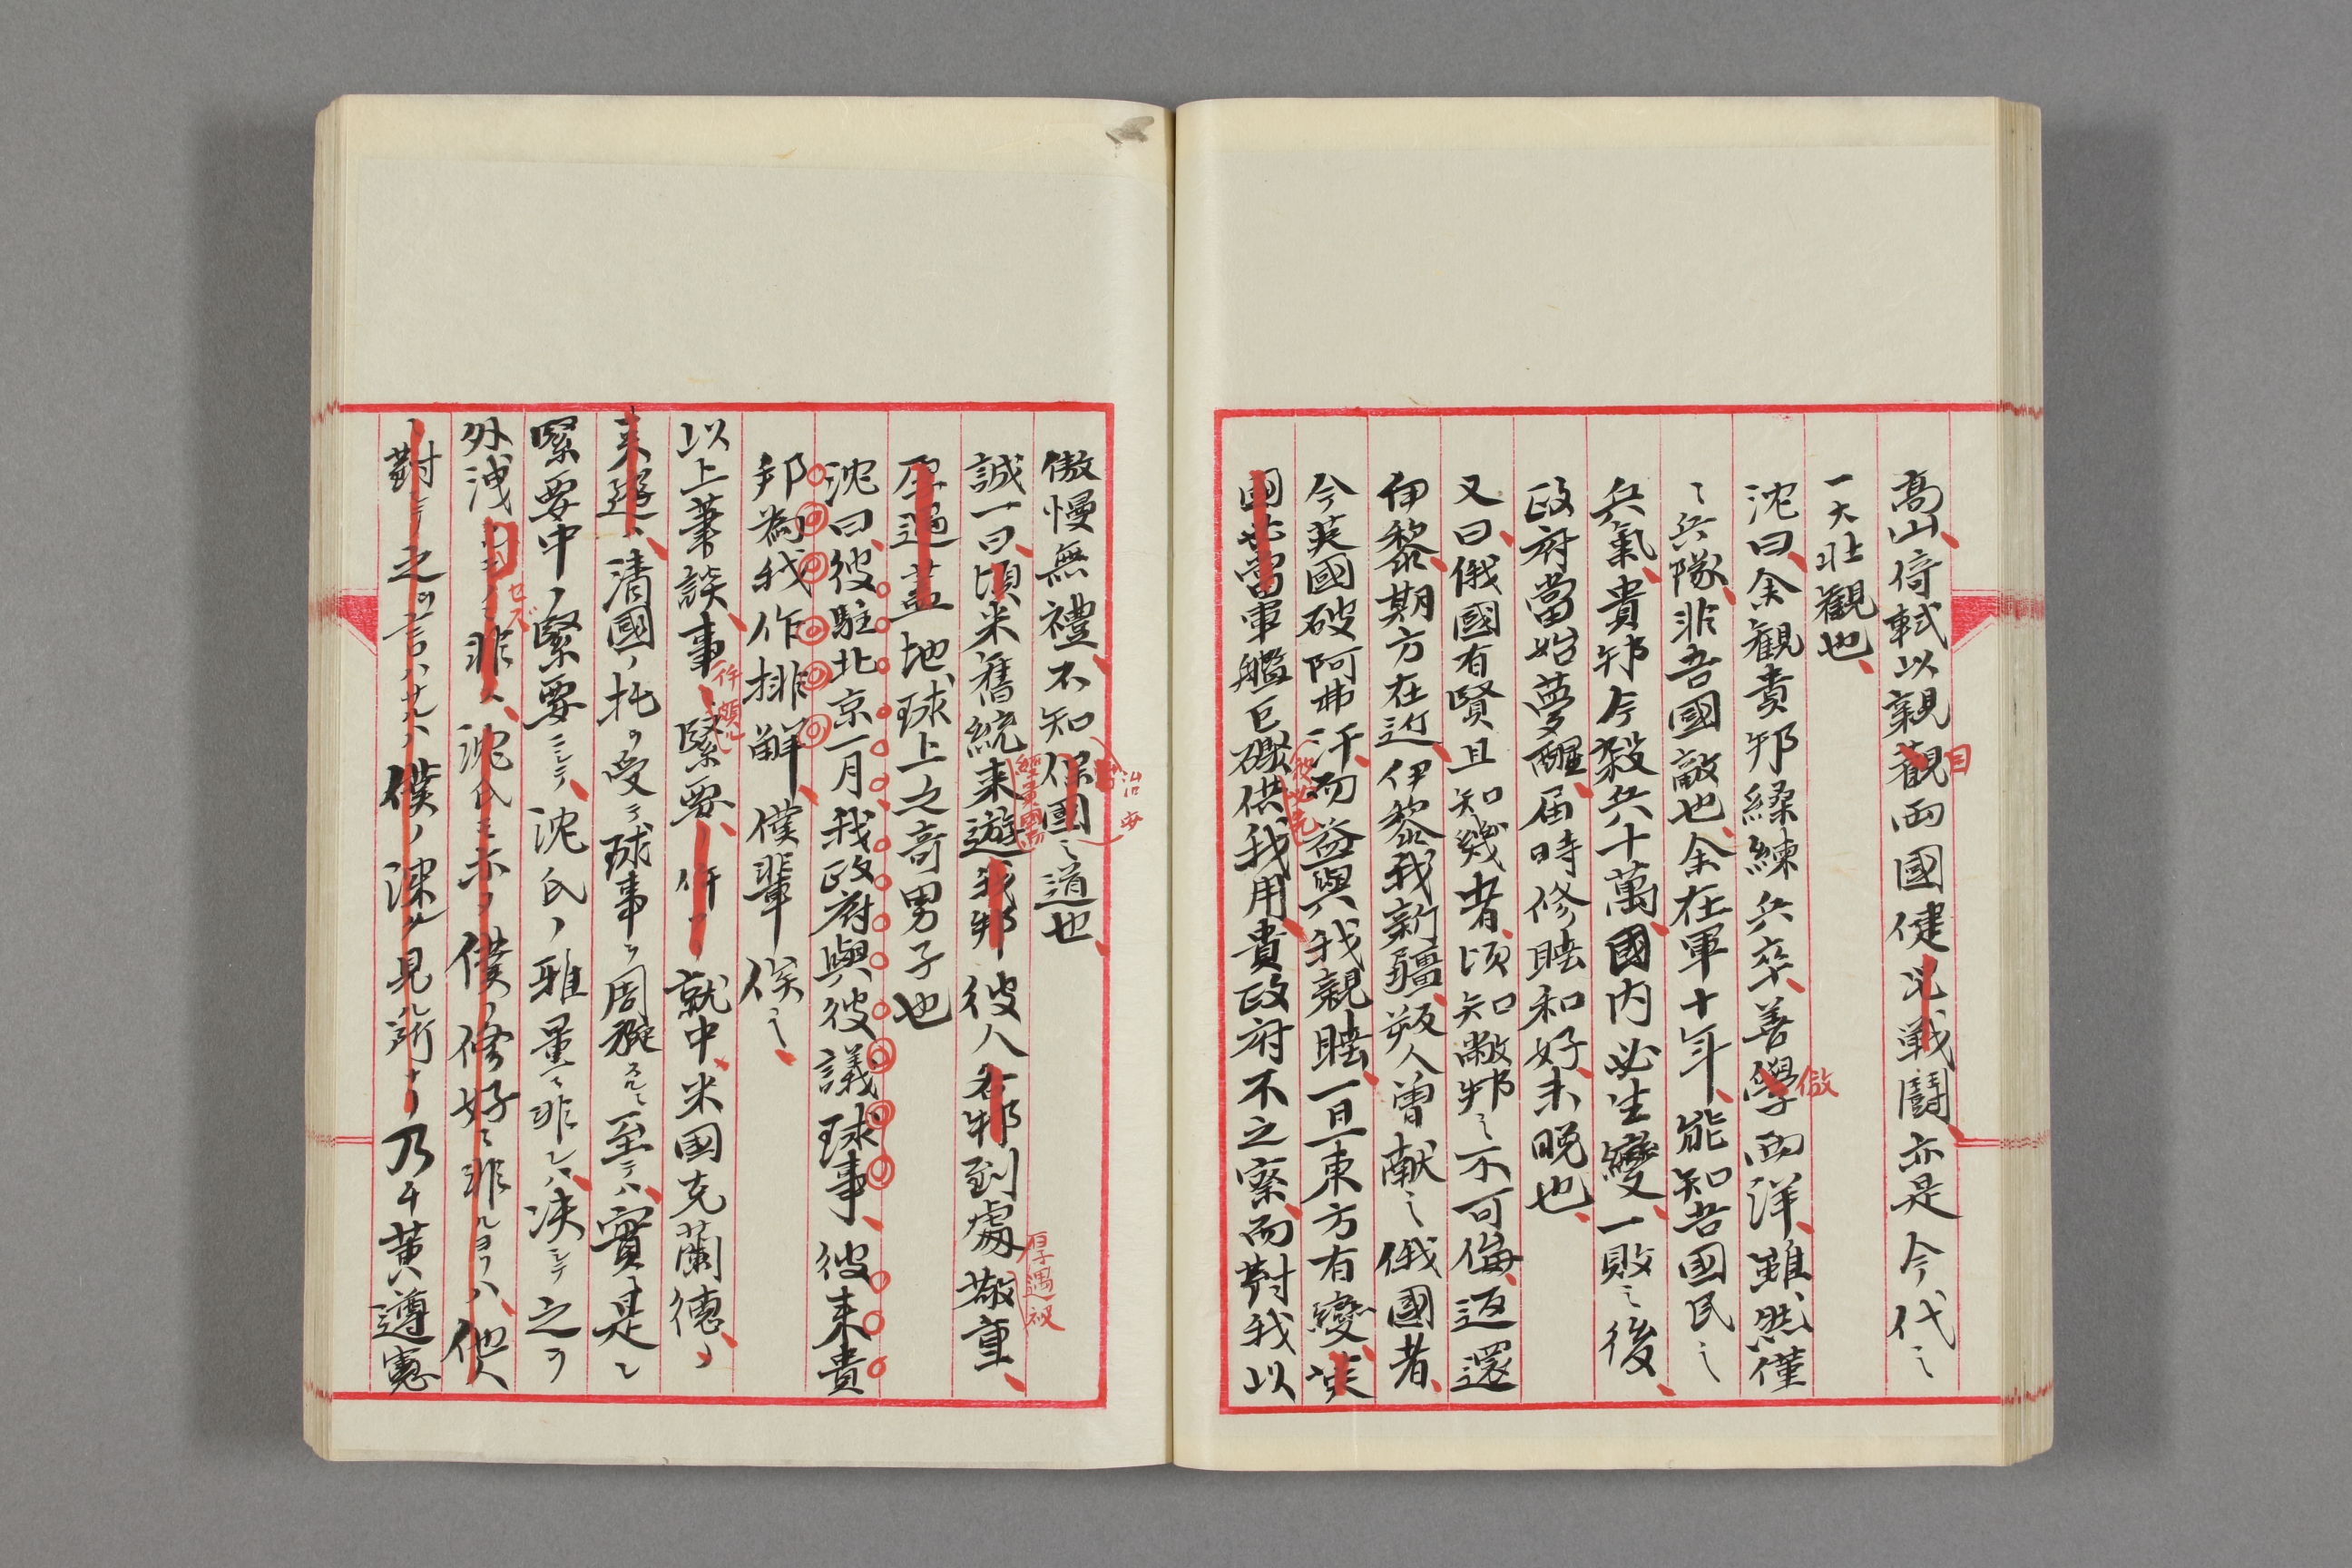 高山、倚軾以親観両國健児戦闘、亦是今代之
目
一大壯觀也、
沈曰、余觀貴邦繰練兵卒、善學西洋、雖然僅
倣
之兵隊、非吾國敵也、余在軍十年、能知吾國民之
兵氣、貴邦今殺兵十萬、國内必生變、一敗之後、
政府當始夢醒、届時修睦和好、未晚也、
又曰、俄國有賢且知幾者、頃知敝邦之不可侮、返還
伊黎、期方在近、伊黎我新疆叛人曾献之俄國者、
今英國破阿弗汗、而益與我親睦、一旦東方有變、英
彼必先
國必當軍艦巨礮供我用、貴政府不之察、而對我以
傲慢無禮、不知保國之道也、
治安
誠一曰、頃米舊統来遊我邦、彼人各邦到處敬重、
厚遇
遍盖地球上之奇男子也
沈曰、彼駐北京一月、我政府與彼議球事、彼来貴
邦為我作排解、僕輩俟之、
以上筆談、事緊要ノ件ニ 就中、米國克蘭德、ノ
件頗ル
来遊、清國ノ托ヲ受ケ球事ヲ周旋スルニ至テハ、實ニ是レ
緊要中ノ緊要ニシテ、沈氏ノ雅量ニ非レハ、決シテ之ヲ
外洩 非ス、沈氏モ亦タ僕ノ修好ニ非ルヨリハ、他人
セズ
ニ對シテ之ヲ言ハサルハ、僕ノ深ク見ル所ナリ乃チ黄遵憲